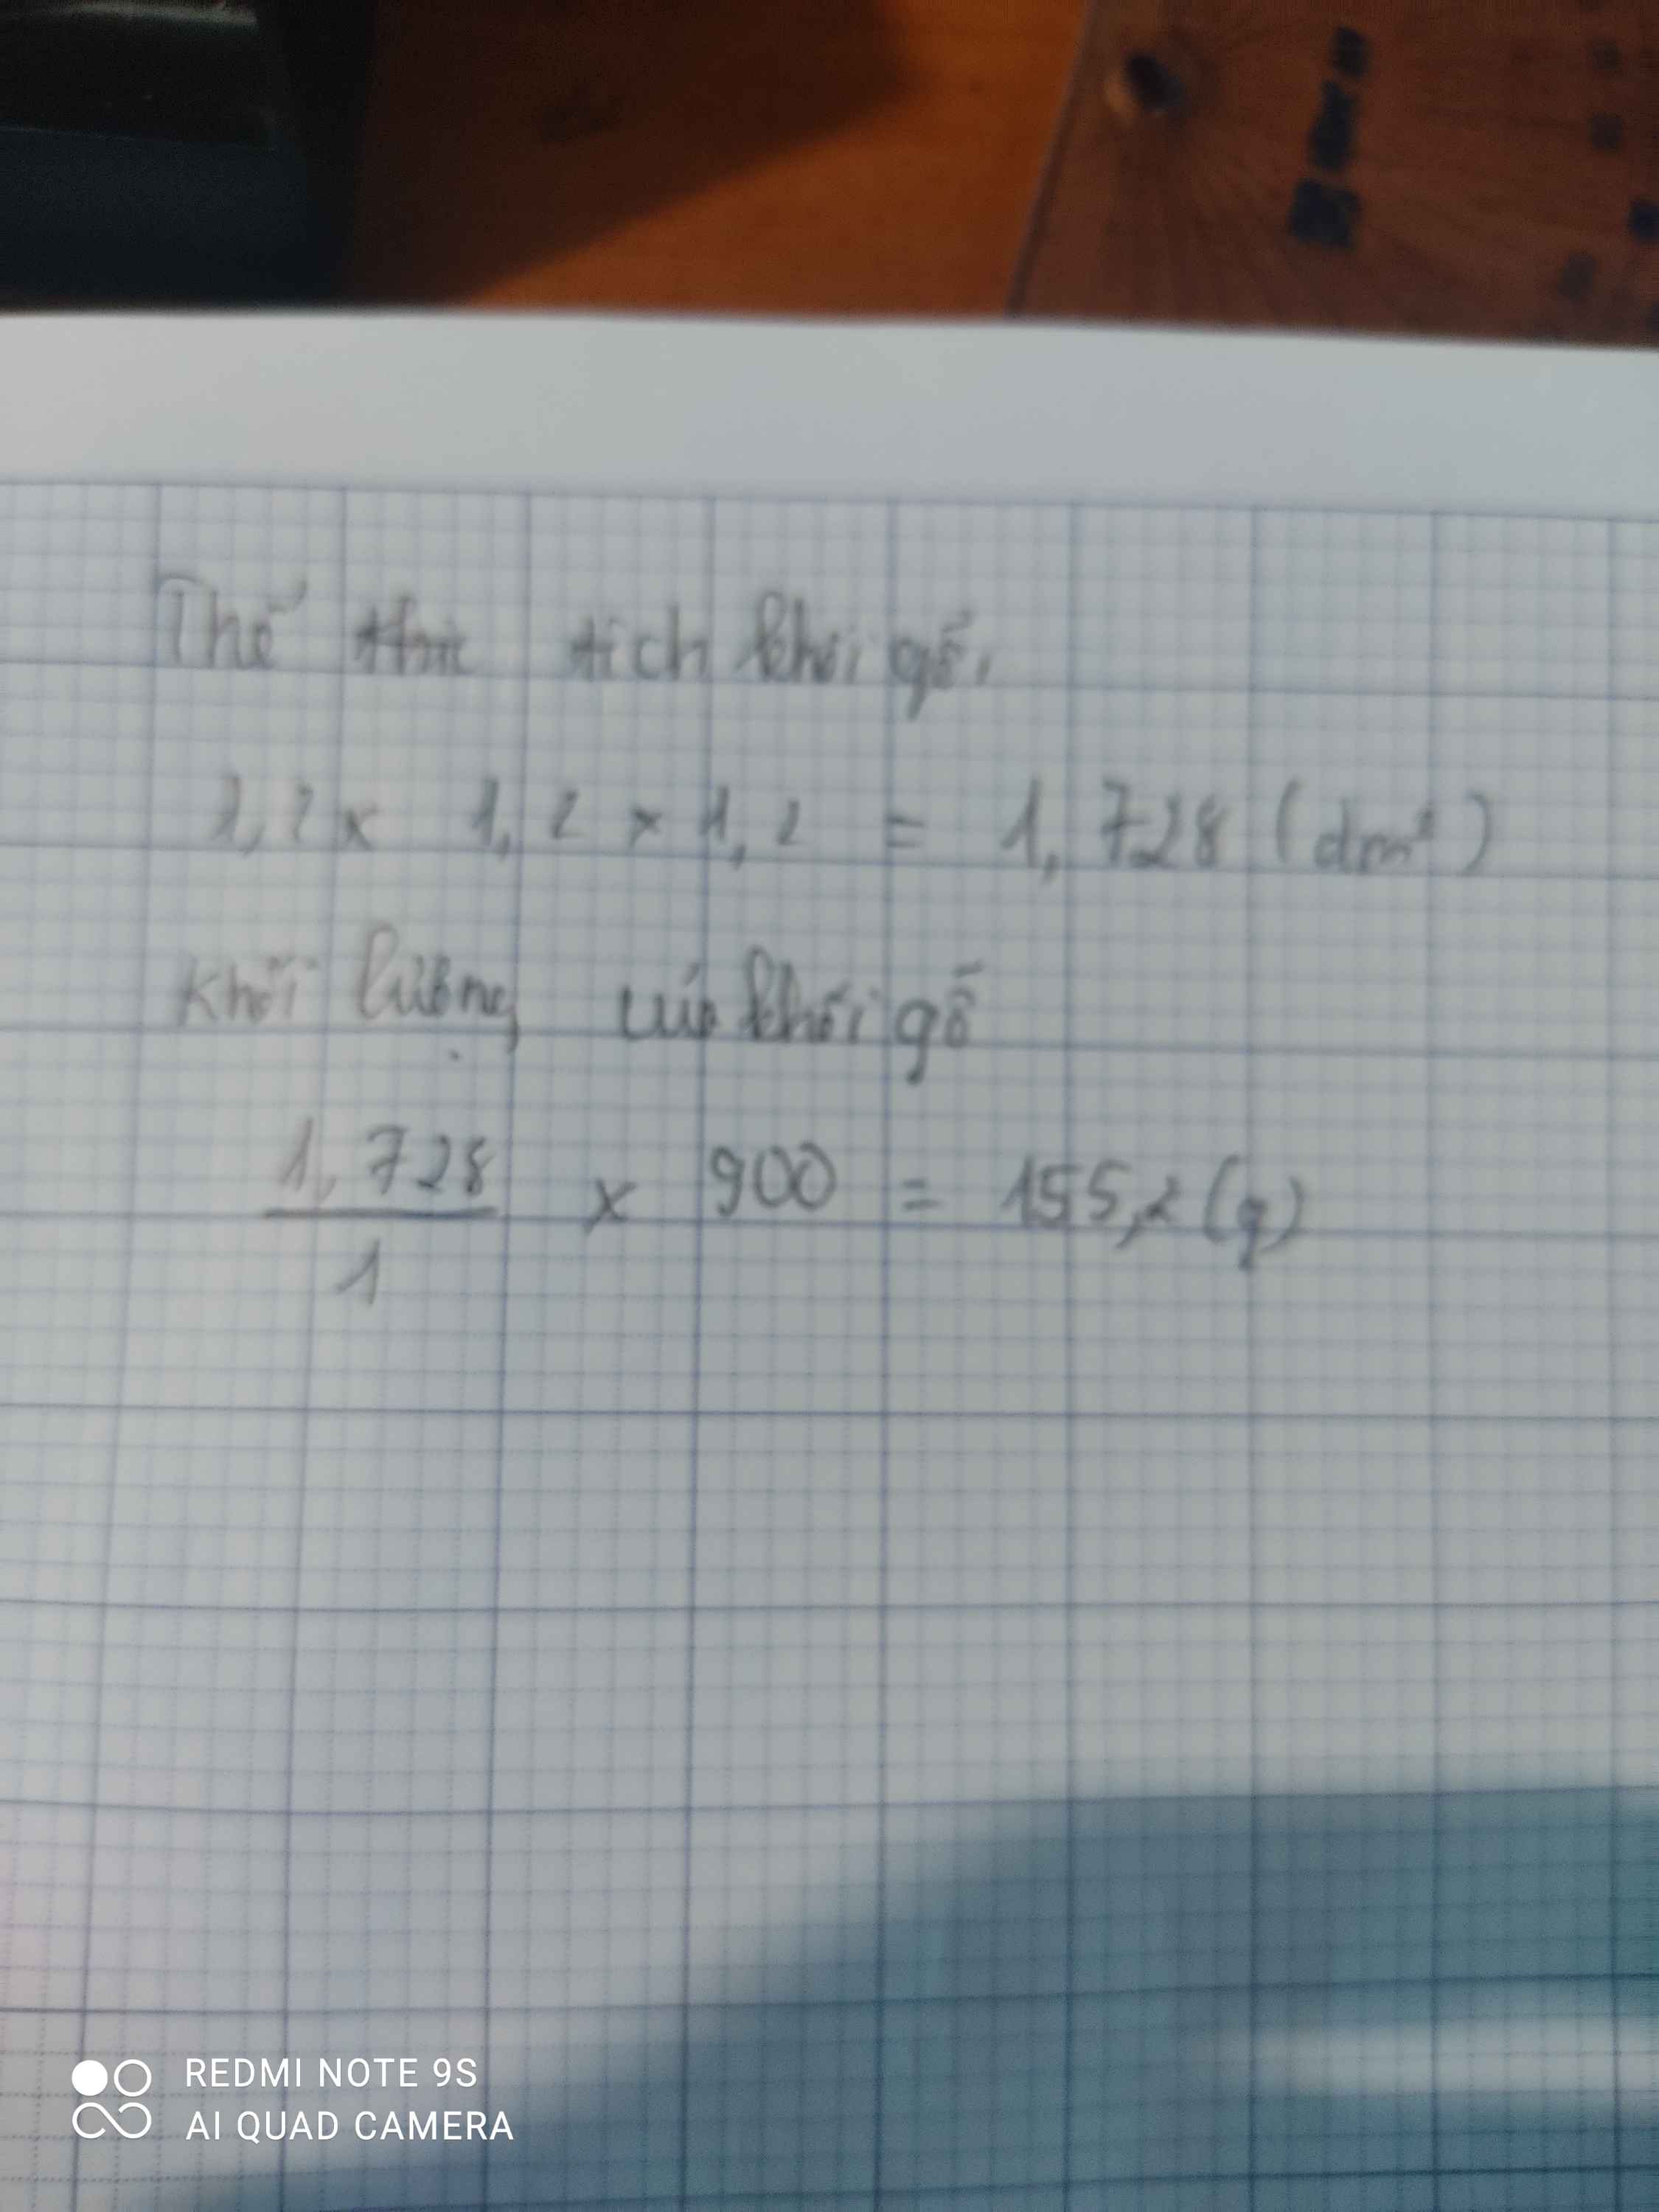 Thể tích khối gỗ,
1,2 x 1,2 x 1,2 = 1,728 (dm³)
Khối lượng của khối gỗ
1,728
x 900 = 155,2 (g)
1
REDMI NOTE 9S
AI QUAD CAMERA